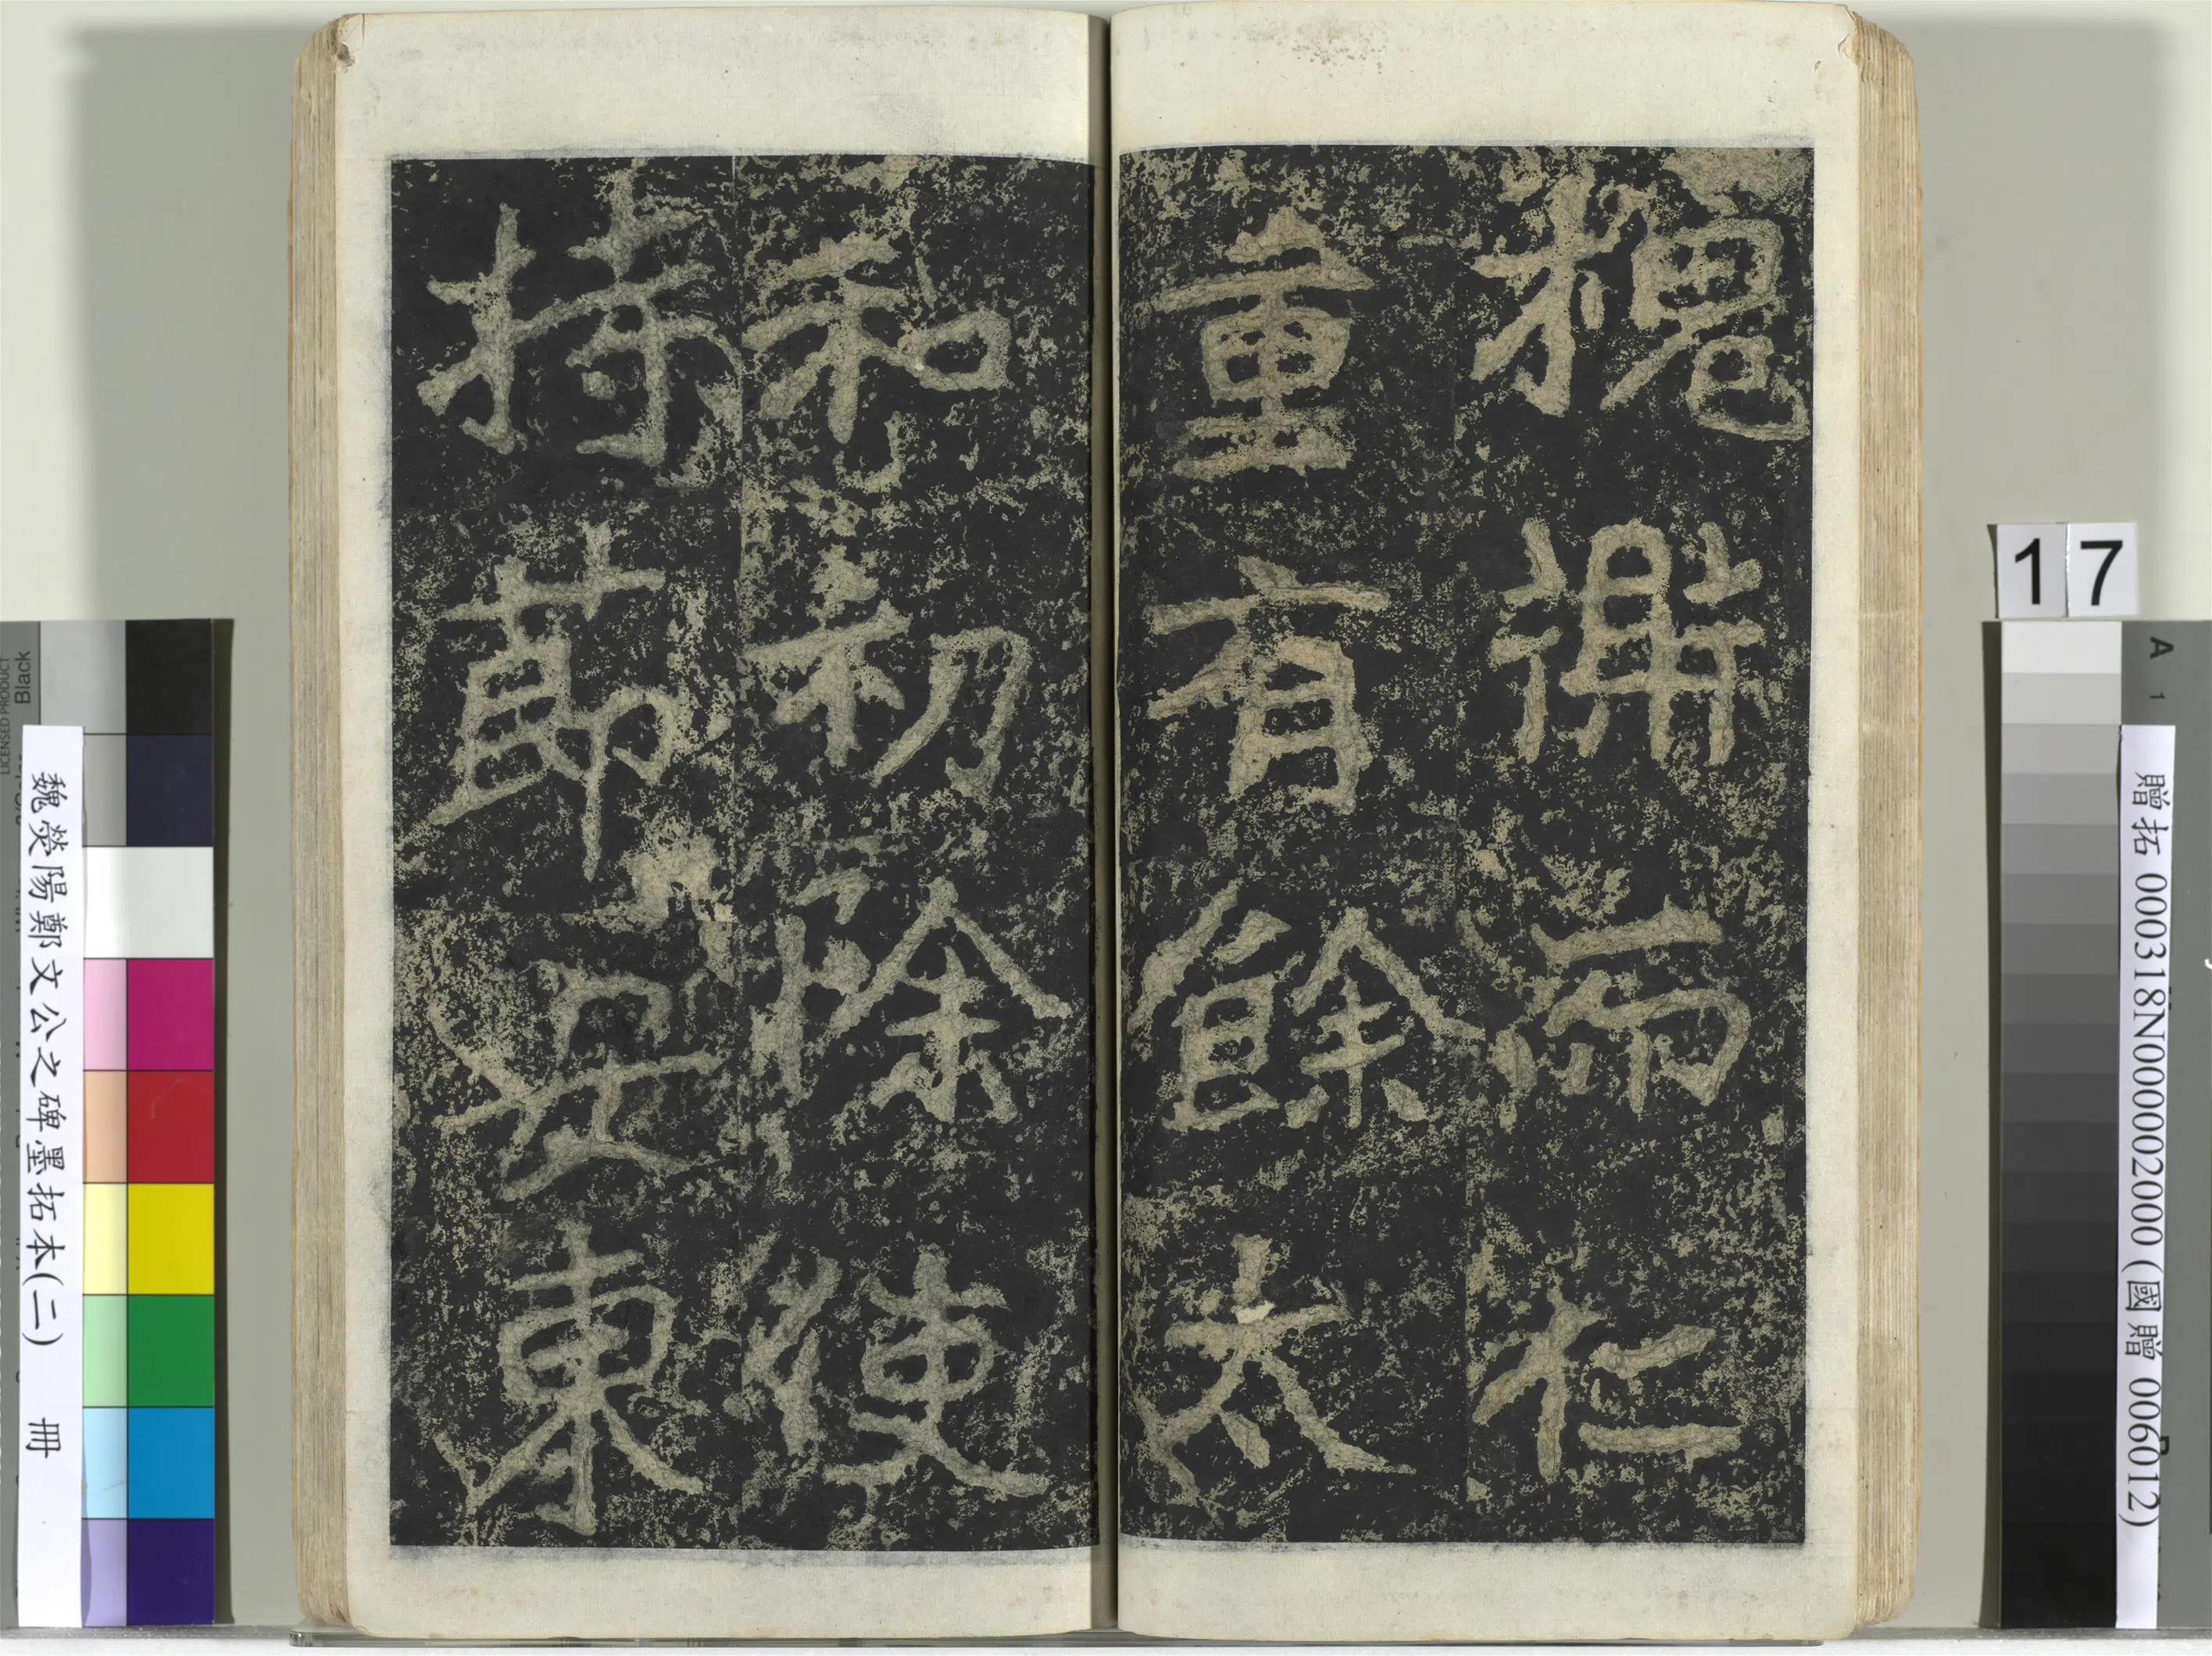 槐衡而仁
重有餘太
和初除使
持節安東
17
A 1
贈拓 000318N000002000 (國贈 006012)
魏滎陽鄭文公之碑墨拓本(二) 冊
LICENSED PRODUCT
Black